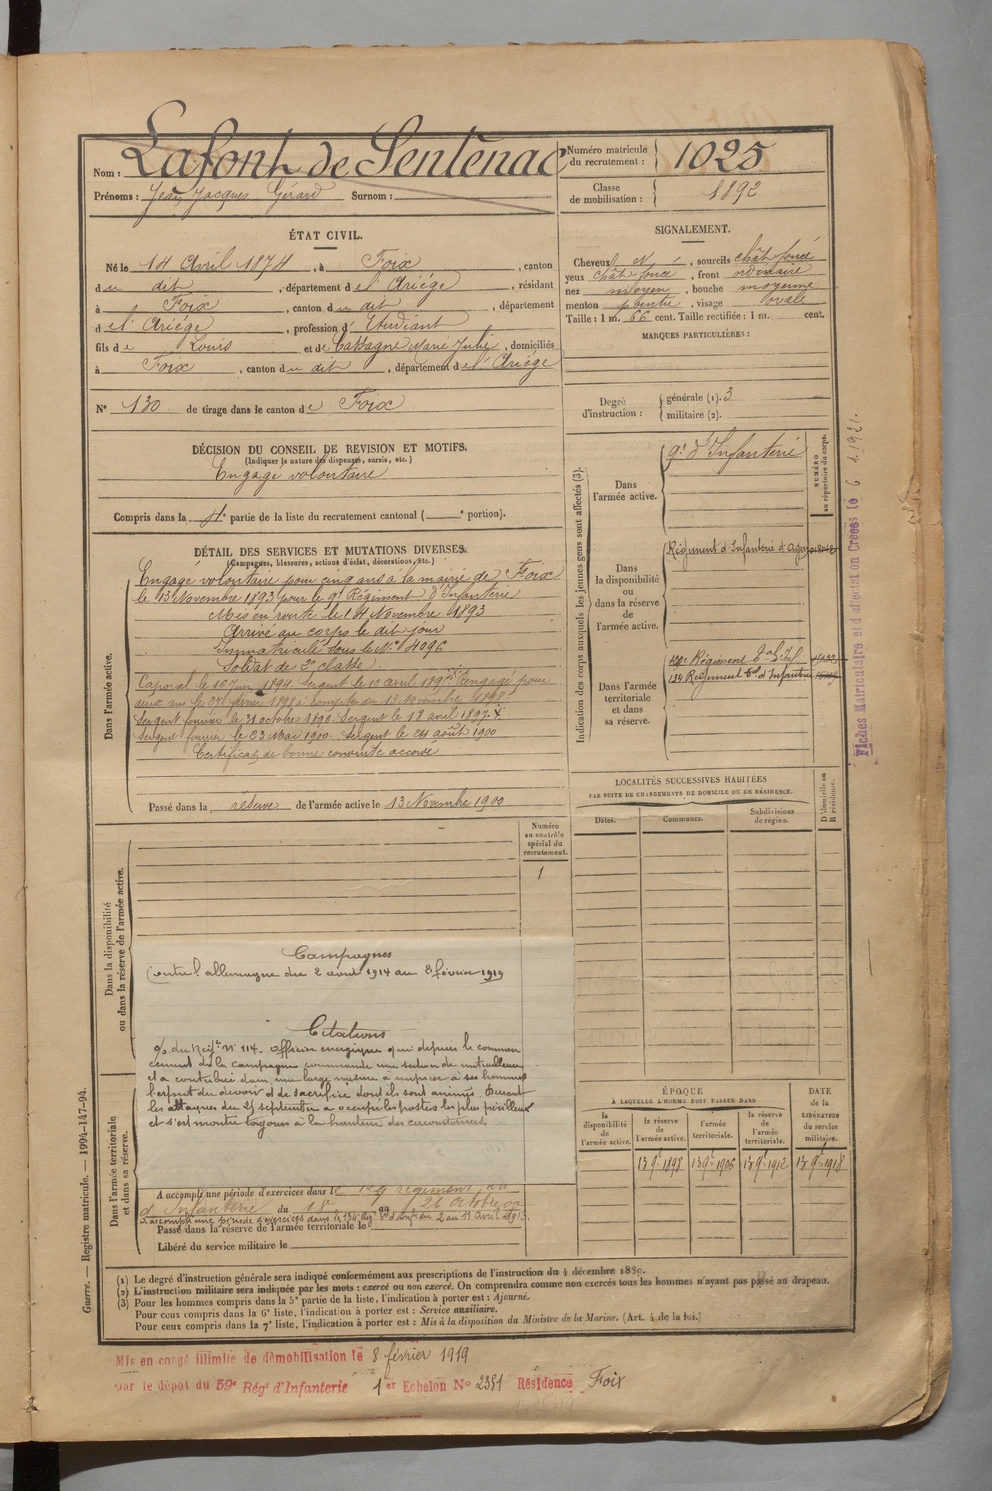 Nom : Lafont de Sentenac
Prénoms : Jean Jacques Gérard Surnom :
Numéro matricule du recrutement : 1025
Classe de mobilisation : 1892
ÉTAT CIVIL.
Né le 14 Avril 1874, à Foix, canton
du dit, département de l'Ariège, résidant
à Foix, canton du dit, département
de l'Ariège, profession d'Étudiant
fils de Louis et de Cassagne Marie Julie, domiciliés
à Foix, canton du dit, département de l'Ariège
N° 130 de tirage dans le canton de Foix
SIGNALEMENT.
Cheveux, sourcils chât foncé
yeux chât foncé, front ordinaire
nez moyen, bouche moyenne
menton, visage ovale
Taille : 1 m. 66 cent. Taille rectifiée : 1 m. cent.
MARQUES PARTICULIÈRES :
Degré d'instruction : générale (1). 3
militaire (2).
DÉCISION DU CONSEIL DE REVISION ET MOTIFS.
(Indiquer la nature des dispenses, sursis, etc.)
Engagé volontaire
Compris dans la 4e partie de la liste du recrutement cantonal ( e portion).
DÉTAIL DES SERVICES ET MUTATIONS DIVERSES.
(Campagnes, blessures, actions d'éclat, décorations, etc.)
Dans l'armée active.
Engagé volontaire pour cinq ans à la mairie de Foix
le 13 Novembre 1893 pour le 9e Régiment d'Infanterie
Mis en route le 14 Novembre 1893
Arrivé au corps le dit jour
Immatriculé sous le N° 4096
Soldat de 2e classe.
Caporal le Juin 1894 Sergent le Rengagé pour
deux ans le 27 1898 à compter du 13 Novembre 1898
Sergent fourrier le 31 octobre Sergent le 18 avril 1897
Sergent fourrier le 23 Mai 1900. Sergent le 24 août 1900
Certificat de bonne conduite accordé
Passé dans la réserve de l'armée active le 13 Novembre 1900
Indication des corps auxquels les jeunes gens sont affectés (3).
NUMÉRO au répertoire du corps.
Dans l'armée active.
9e d'Infanterie
Dans la disponibilité ou dans la réserve de l'armée active.
Régiment d'Infanterie d'Agen
Dans l'armée territoriale et dans sa réserve.
Régiment d'Inf
134 Régiment d'Infanterie
Fiches Matriculaire et d'affectation Créées le 6 1.1921.
LOCALITÉS SUCCESSIVES HABITÉES
PAR SUITE DE CHANGEMENTS DE DOMICILE OU DE RÉSIDENCE.
Dates. Communes. Subdivisions de région. D domicile ou R résidence.
Dans la disponibilité ou dans la réserve de l'armée active.
Numéro au contrôle spécial du recrutement.
1
Campagnes
Contre l'allemagne du 2 août 1914 au 8 février 1919
Citations
% du Régt n° 114. Officier energique qui depuis le commen
cement de la campagne commande une section de mitrailleuses
et a contribué dans une large mesure à inspirer à ses hommes
l'esprit du devoir et de sacrifice dont ils sont animés. Durant
les attaques du 25 septembre a occupé les postes les plus périlleux
et s'est montré toujours à la hauteur des circonstances.
Dans l'armée territoriale et dans sa réserve.
A accompli une période d'exercices dans le régiment
d'Infanterie du 18 au 26 Octobre
a accompli une période d'exercices dans le 134 Rég d'Inf du 2 au 11 Avril 1913.
Passé dans la réserve de l'armée territoriale le
Libéré du service militaire le
ÉPOQUE
À LAQUELLE L'HOMME DOIT PASSER DANS
la disponibilité de l'armée active. la réserve de l'armée active. l'armée territoriale. la réserve de l'armée territoriale.
DATE de la LIBÉRATION du service militaire.
13 9e 1898 13 9e 1906 13 9e 1912 13 9e 1918
(1) Le degré d'instruction générale sera indiqué conformément aux prescriptions de l'instruction du 4 décembre 1889.
(2) L'instruction militaire sera indiquée par les mots : exercé ou non exercé. On comprendra comme non exercés tous les hommes n'ayant pas passé au drapeau.
(3) Pour les hommes compris dans la 5e partie de la liste, l'indication à porter est : Ajourné.
Pour ceux compris dans la 6e liste, l'indication à porter est : Service auxiliaire.
Pour ceux compris dans la 7e liste, l'indication à porter est : Mis à la disposition du Ministre de la Marine. (Art. 4 de la loi.)
Guerre. — Registre matricule. — 1994-147-94.
Mis en congé illimité de démobilisation le 8 février 1919
par le dépôt du 59e Régt d'Infanterie 1er Echelon N° 2351 Résidence Foix